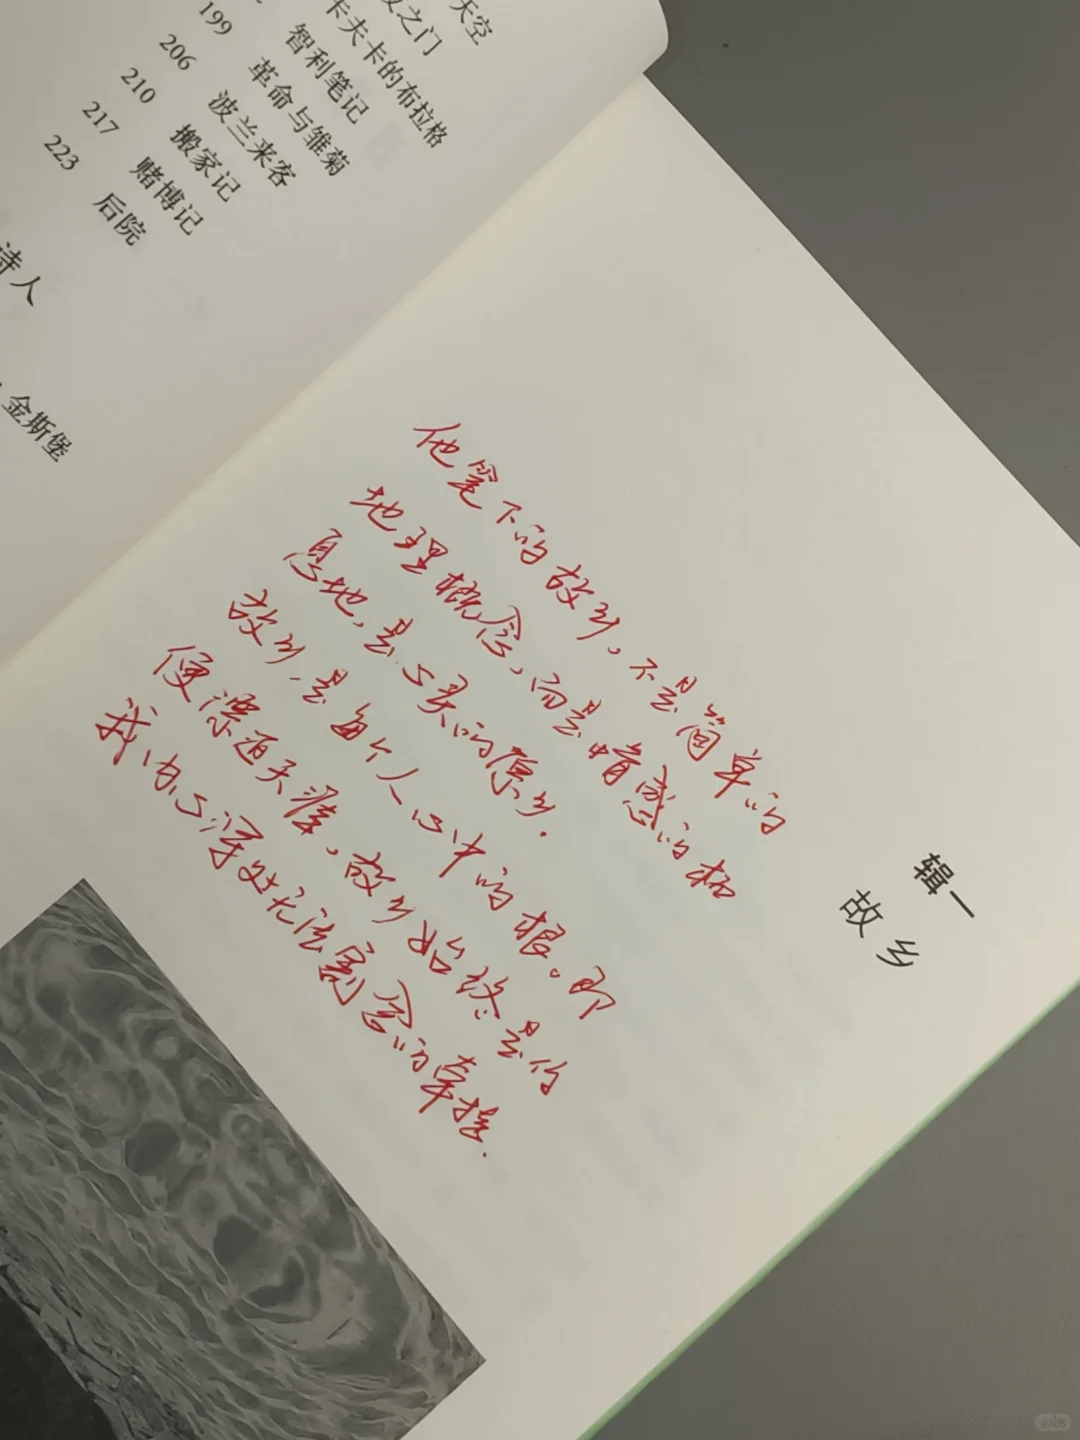 天空
之门
卡夫卡的布拉格
智利笔记
199 革命与雏菊
206 波兰来客
210 搬家记
217 赌博记
223 后院
诗人
金斯堡
辑一
故乡
他笔下的故乡，不是简单的
地理概念，而是情感的栖
息地，是心灵的原乡.
故乡，是每个人心中的根。即
便漂泊天涯，故乡始终是你
我内心深处无法割舍的牵挂.